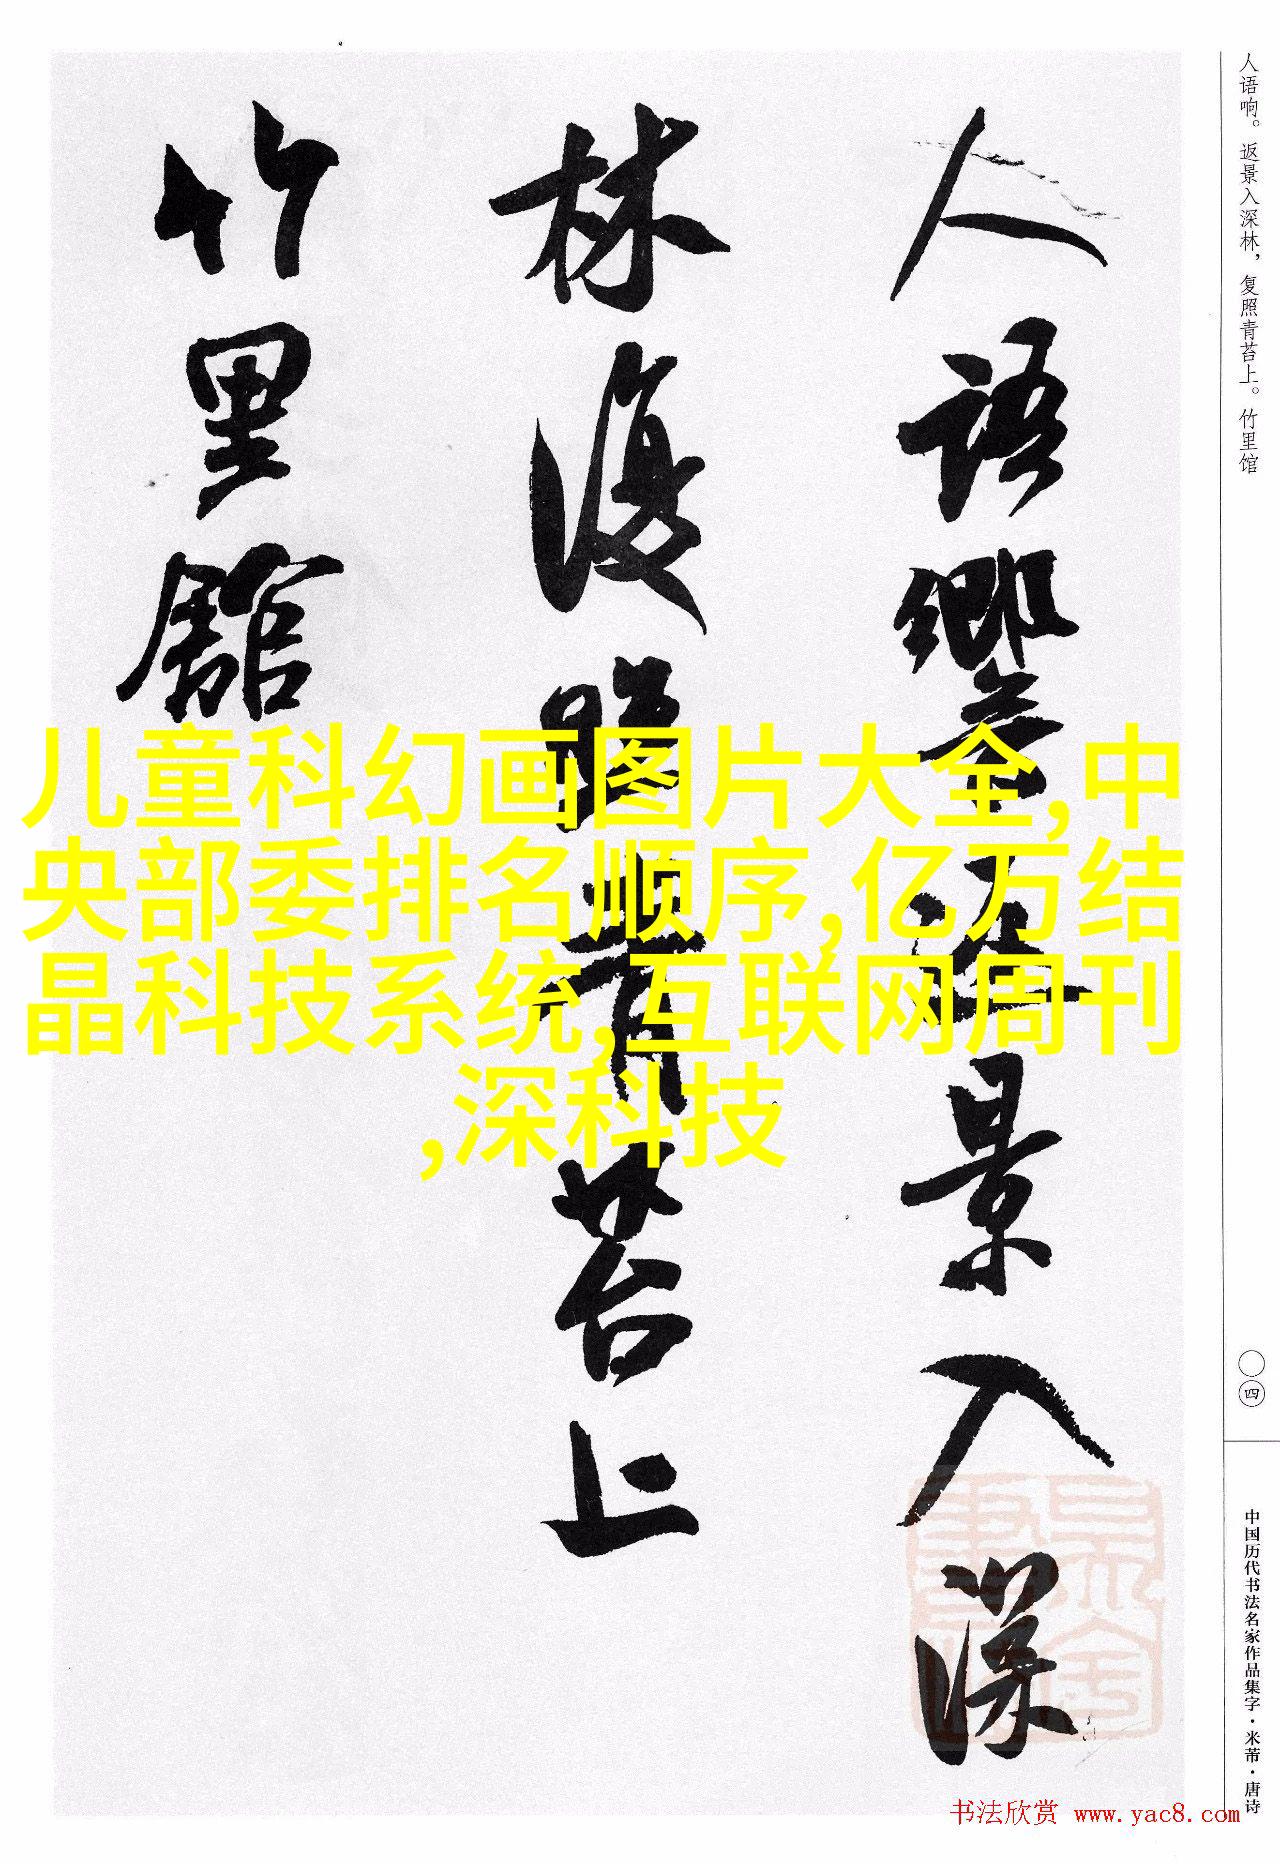 人语响。返景入深林，复照青苔上。竹里馆
人语響返景入深
林復照青苔上
竹里館
儿童科幻画图片大全,中
央部委排名顺序,亿万结
晶科技系统,互联网周刊
,深科技
〇四
中国历代书法名家作品集字·米芾·唐诗
书法欣赏 www.yac8.com